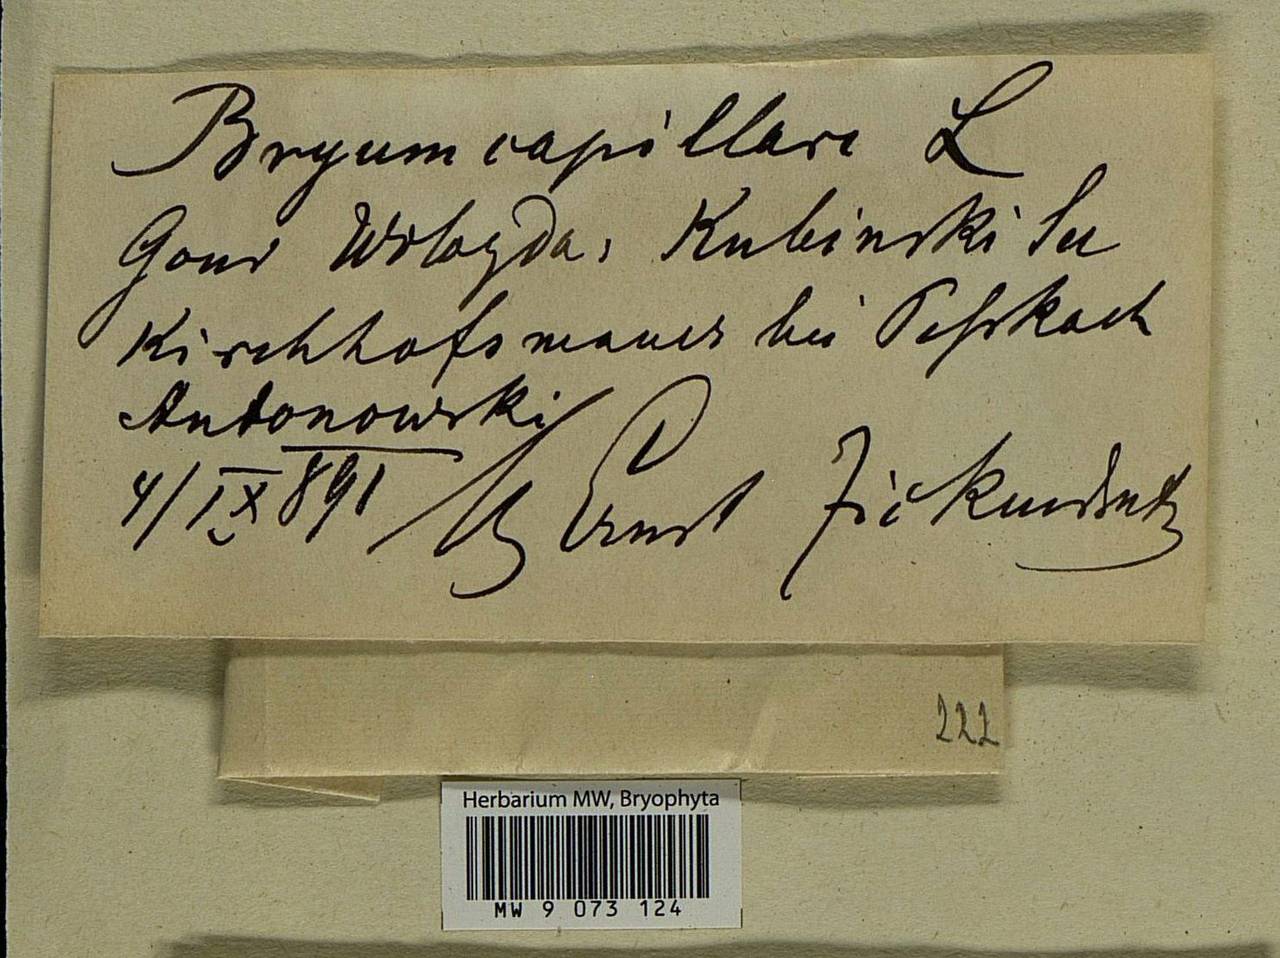 Bryum capillare L
Gouv Wologda, Kubinski See
Kirchhofsmauer bei
Antonowski
4/IX 891 Ernst Zickendratz
222
Herbarium MW, Bryophyta
MW 9 073 124